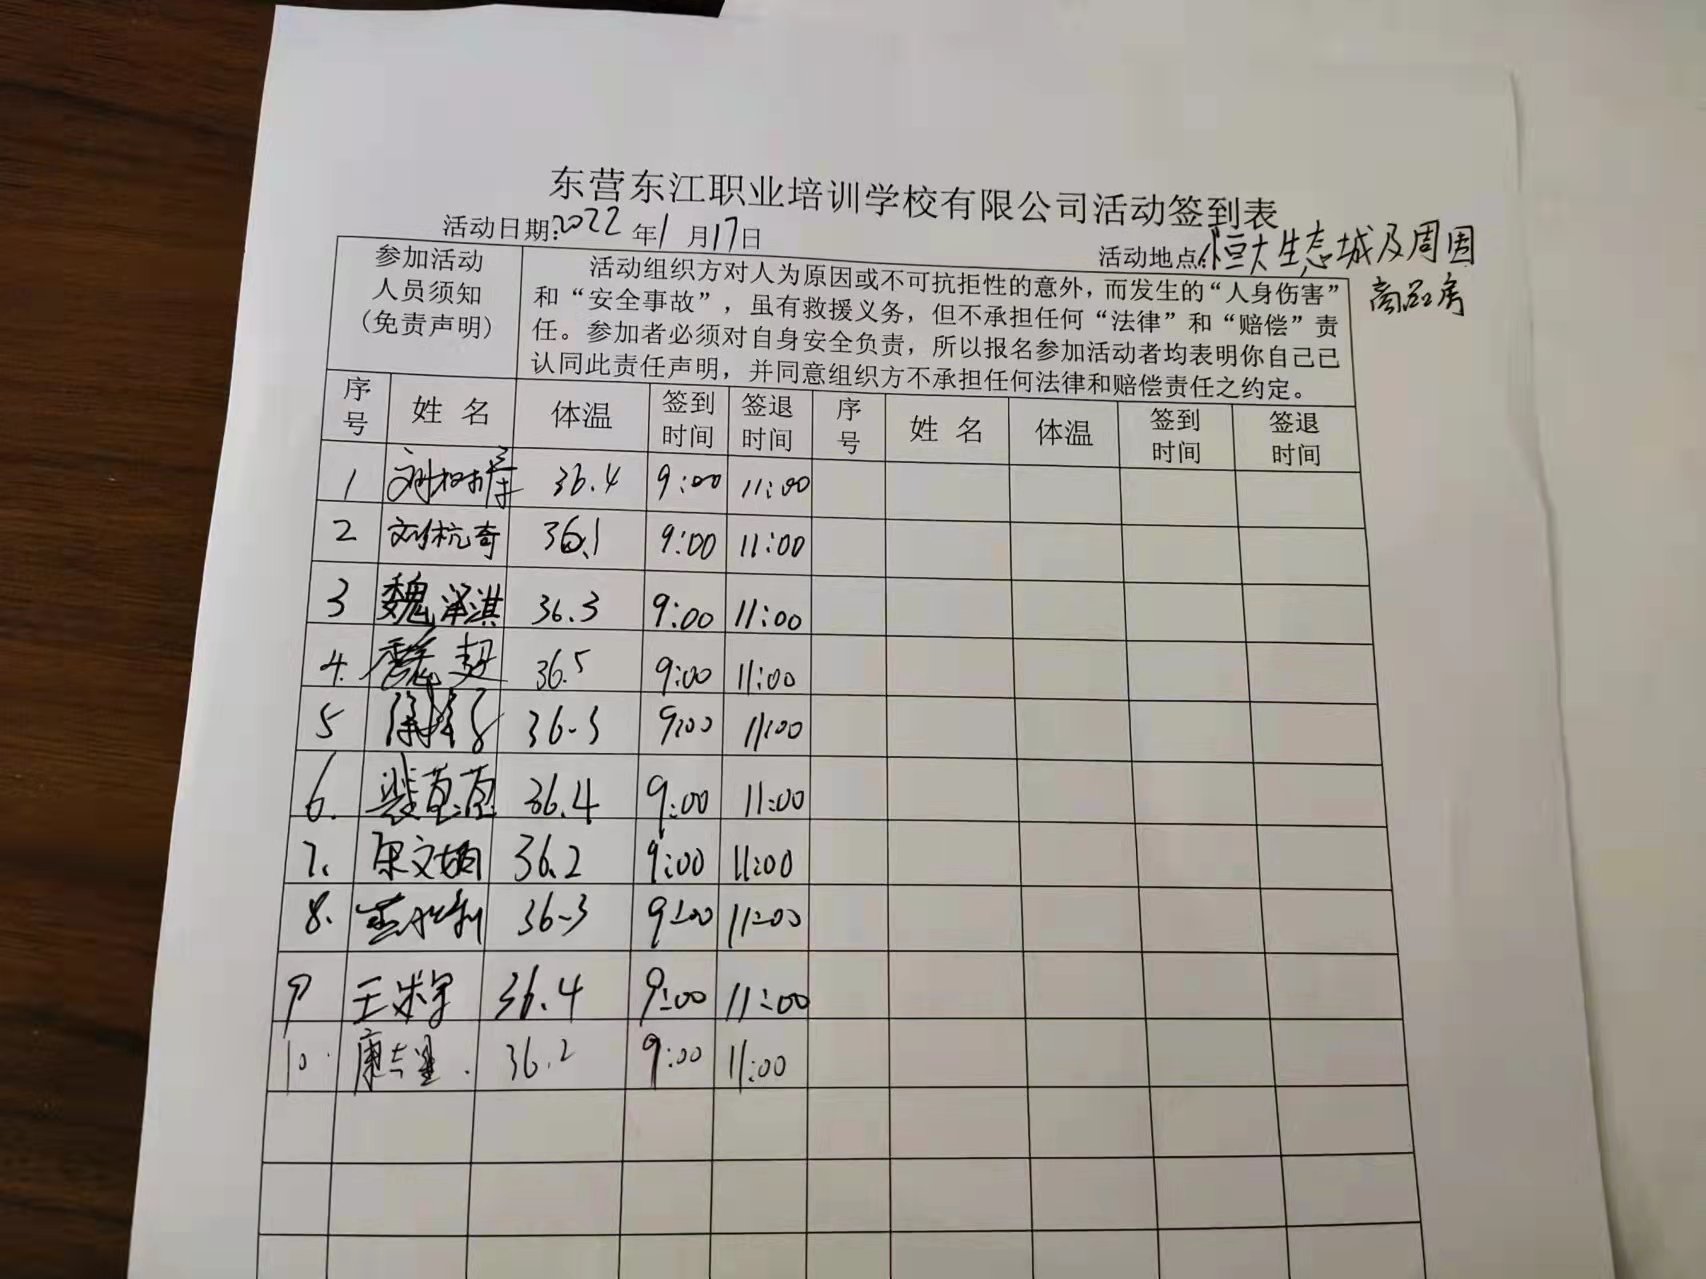 东营东江职业培训学校有限公司活动签到表
活动日期:2022年1月17日
活动地点:恒大生态城及周围
商品房
参加活动
人员须知
(免责声明)
活动组织方对人为原因或不可抗拒性的意外,而发生的“人身伤害”
和“安全事故”,虽有救援义务,但不承担任何“法律”和“赔偿”责
任。参加者必须对自身安全负责,所以报名参加活动者均表明你自己已
认同此责任声明,并同意组织方不承担任何法律和赔偿责任之约定。
序号 姓名 体温 签到时间 签退时间 序号 姓名 体温 签到时间 签退时间
1 36.4 9:00 11:00
2 刘杭奇 36.1 9:00 11:00
3 魏泽淇 36.3 9:00 11:00
4. 36.5 9:00 11:00
5 36.3 9:00 11:00
6. 36.4 9:00 11:00
7. 36.2 9:00 11:00
8. 36.3 9:00 11:00
9 36.4 9:00 11:00
10. 36.2 9:00 11:00